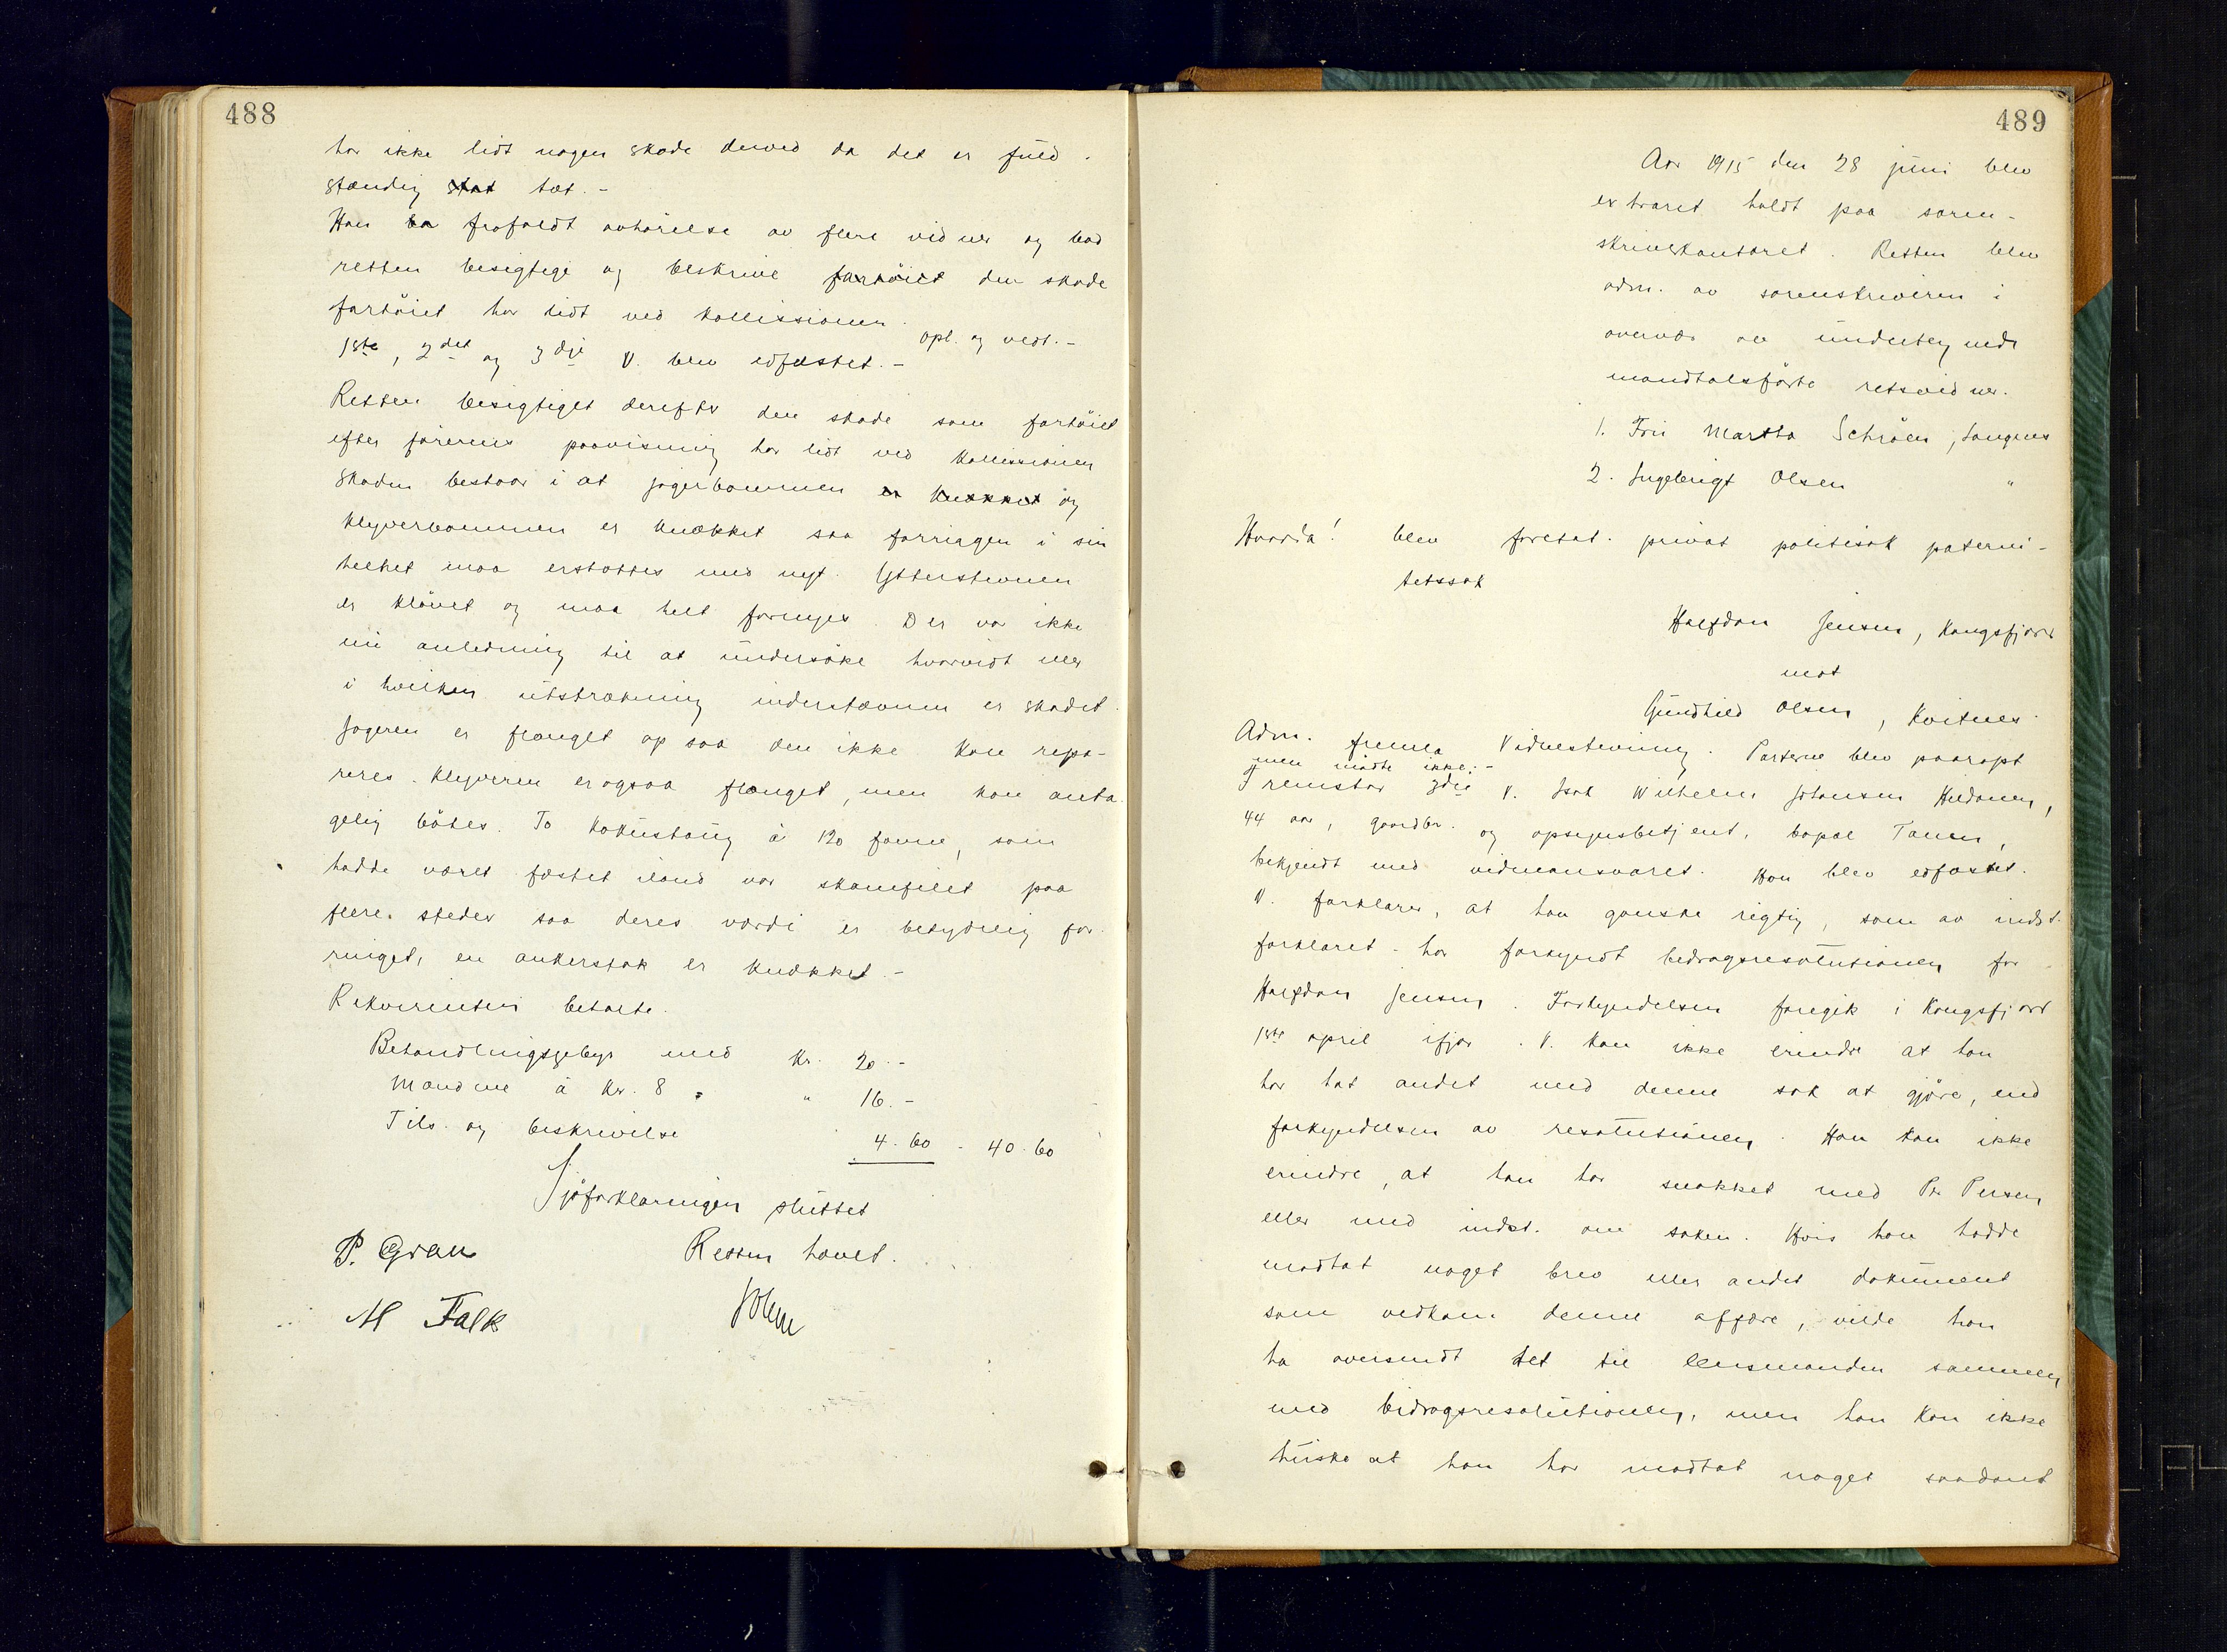 488
har ikke lidt nogen skade derved da det er fuld-
stændig stat tæt.-
Han ba frafaldt avhörelse av flere vidner og bad
retten besigtige og beskrive fartöiet den skade
fartöiet har lidt ved kollissionen opl. og vedt.-
1ste, 2det og 3dje V. blev edfæstet.-
Retten besigtiget derefter den skade som fartöiet
efter förerens paavisning har lidt ved kollissionen
Skaden bestaar i at jagerbommen er knækket og
klyverbommen er knækket saa forriggen i sin
helhet maa erstattes med nyt. Ytterstevnen
er klövet og maa helt fornyes. Der var ikke
nu anledning til at undersöke hvorvidt eller
i hvilken utstrækning inderstævnen er skadet.
Jageren er flænget op saa den ikke kan repa-
reres. Klyveren er ogsaa flænget, men kan anta-
gelig bötes. To kokustaug à 120 favne, som
hadde været fæstet iland var skamfilet paa
flere steder saa deres værdi er betydelig for-
ringet, en ankerstok er knækket.-
Rekvirenten betalte.
Behandlingsgebyr med kr. 20.-
Mændene à kr. 8 " 16.-
Tils. og beskrivelse 4.60 - 40.60
Sjöforklaringen sluttet
P. Gran Retten hævet.
M Falk
489
Aar 1915 den 28 juni blev
extraret holdt paa soren-
skriverkontoret. Retten blev
adm. av sorenskriveren i
overvær av undertegnede
mandtalsförte retsvidner.
1. Fru Martha Schröen, Langnes
2. Ingebrigt Olsen "
Hvorda! blev foretat privat politisak paterni-
tetssak
Halfdan Jensen, Kongsfjord
mot
Gundhild Olsen, Kvitnes
Adm. fremla Vidnestevning. Parterne blev paaropt
men mödte ikke.-
Fremstod 3die V. Isak Wilhelm Johansen Hildonen,
44 aar, gaardbr. og opsynsbetjent, bopæl Tanen,
bekjendt med vidneansvaret. Han blev edfæstet.
V. forklarer, at han ganske rigtig, som av indst.
forklaret - har forkyndt bidragsresolutionen for
Halfdan Jensen. Forkyndelsen foregik i Kongsfjord
1ste april ifjor. V. kan ikke erindre at han
har hat andet med denne sak at gjöre, end
forkyndelsen av resolutionen. Han kan ikke
erindre, at han har snakket med Per Persen
eller med indst. om saken. Hvis han hadde
modtat noget brev eller andet dokument
som vedkom denne affære, vilde han
ha oversendt det til lensmanden sammen
med bidragsresolutionen, men han kan ikke
huske at han har modtat noget saadant